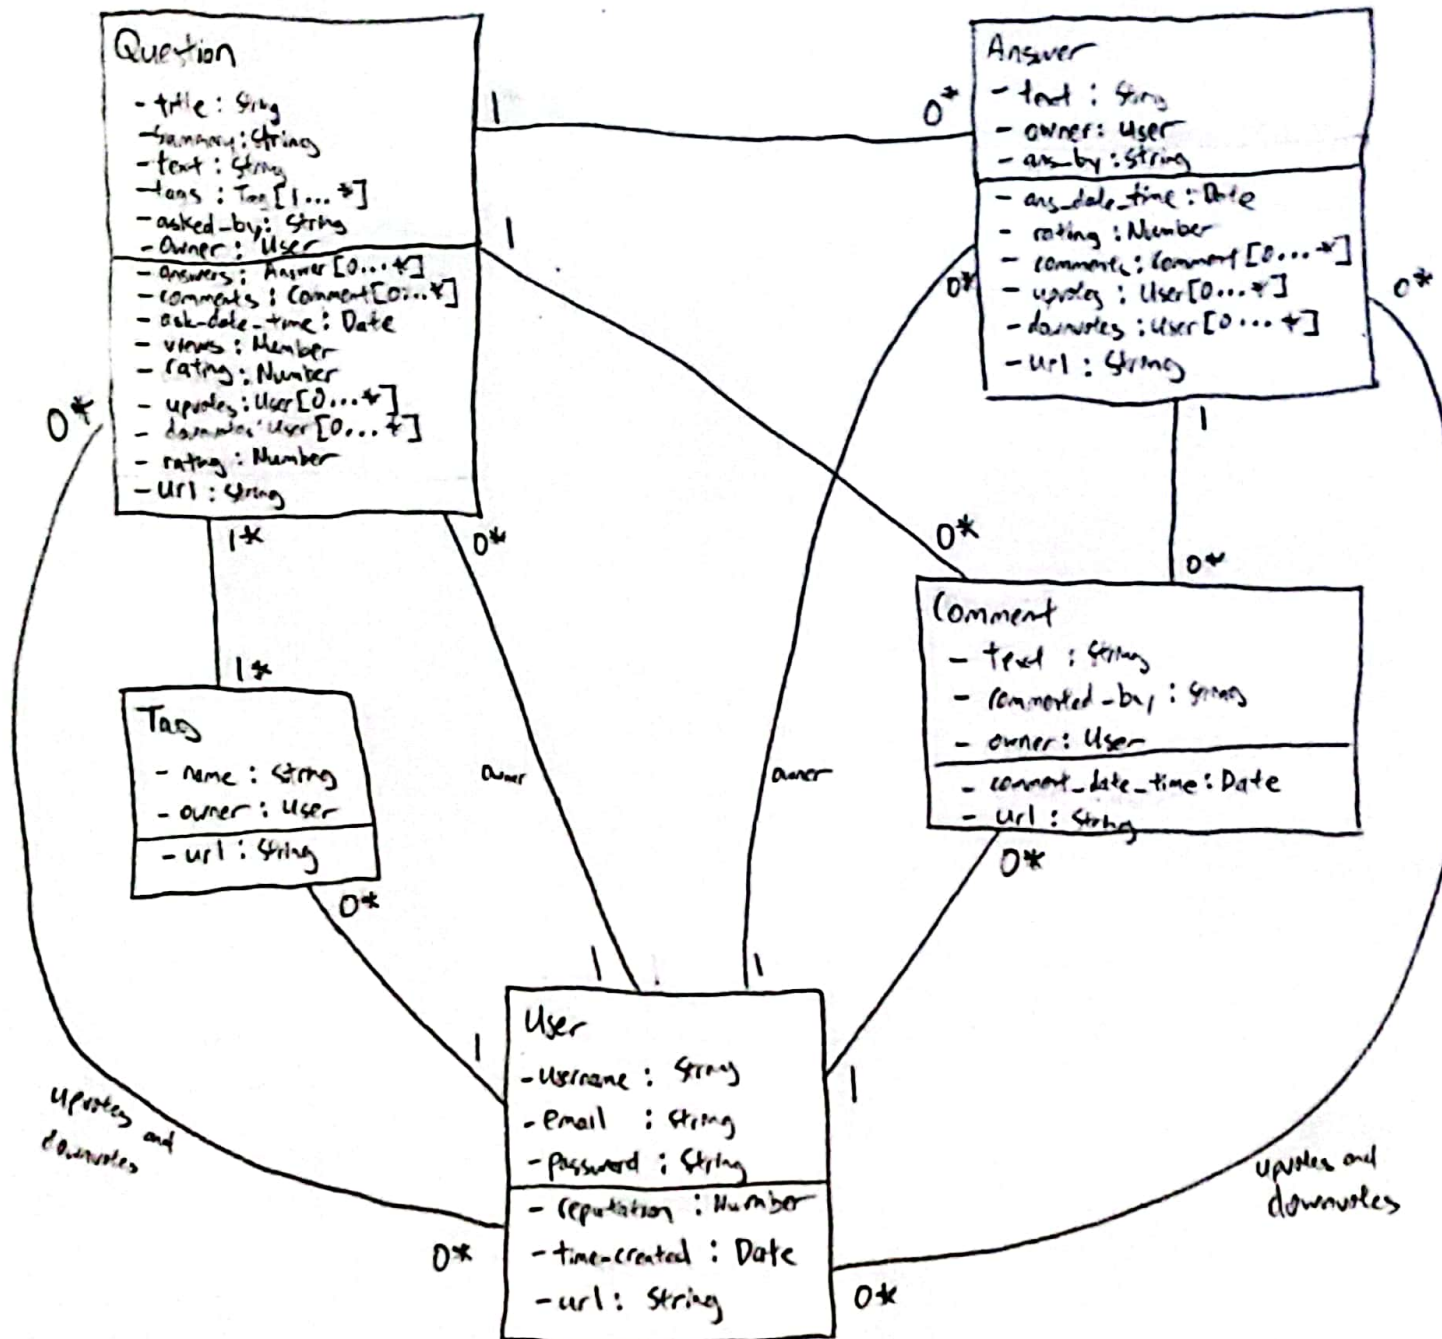 Question
- title : String
- summary : String
- text : String
- tags : Tag [1...*]
- asked_by : String
- owner : User
- answers : Answer [0...*]
- comments : Comment [0...*]
- ask_date_time : Date
- views : Number
- rating : Number
- upvotes : User [0...*]
- downvotes : User [0...*]
- rating : Number
- url : String
Answer
- text : String
- owner : User
- ans_by : String
- ans_date_time : Date
- rating : Number
- comments : Comment [0...*]
- upvotes : User [0...*]
- downvotes : User [0...*]
- url : String
1
0*
1
0*
0*
0*
1
1*
0*
0*
0*
1*
Comment
- text : String
- commented_by : String
- owner : User
- comment_date_time : Date
- url : String
Tag
- name : String
- owner : User
- url : String
owner
owner
0*
0*
1
1
1
1
User
- username : String
- email : String
- password : String
- reputation : Number
- time_created : Date
- url : String
upvotes and
downvotes
upvotes and
downvotes
0*
0*